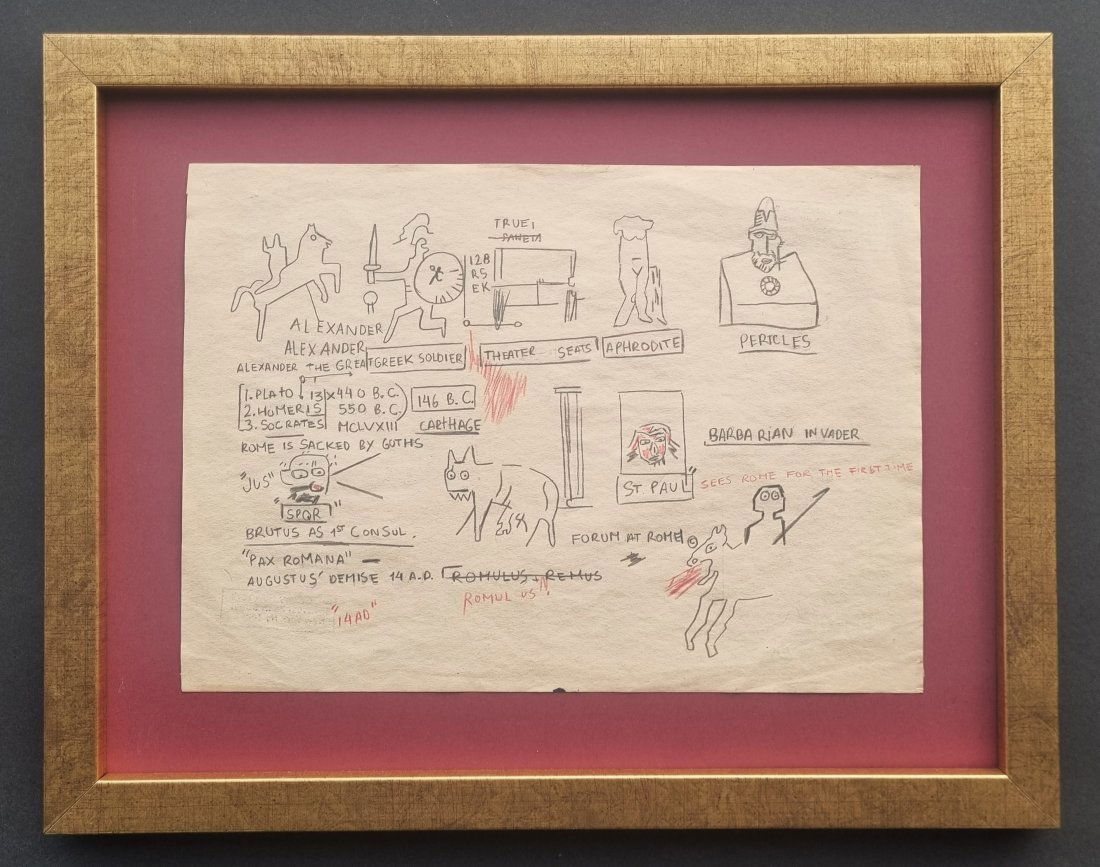 TRUE,
128
RS
EK
ALEXANDER
ALEXANDER
ALEXANDER THE GREAT
GREEK SOLDIER
THEATER SEATS
APHRODITE
PERICLES
1. PLATO 13 x 440 B.C.
2. HOMERIS 550 B.C.
3. SOCRATES MCLVXIII
146 B.C.
CARTHAGE
ROME IS SACKED BY GOTHS
"JUS"
"SPQR"
BRUTUS AS 1ST CONSUL.
"PAX ROMANA" —
AUGUSTUS' DEMISE 14 A.D.
"14AD"
ROMULUS + REMUS
ROMULUS
ST. PAUL"
BARBARIAN INVADER
SEES ROME FOR THE FIRST TIME
FORUM AT ROME